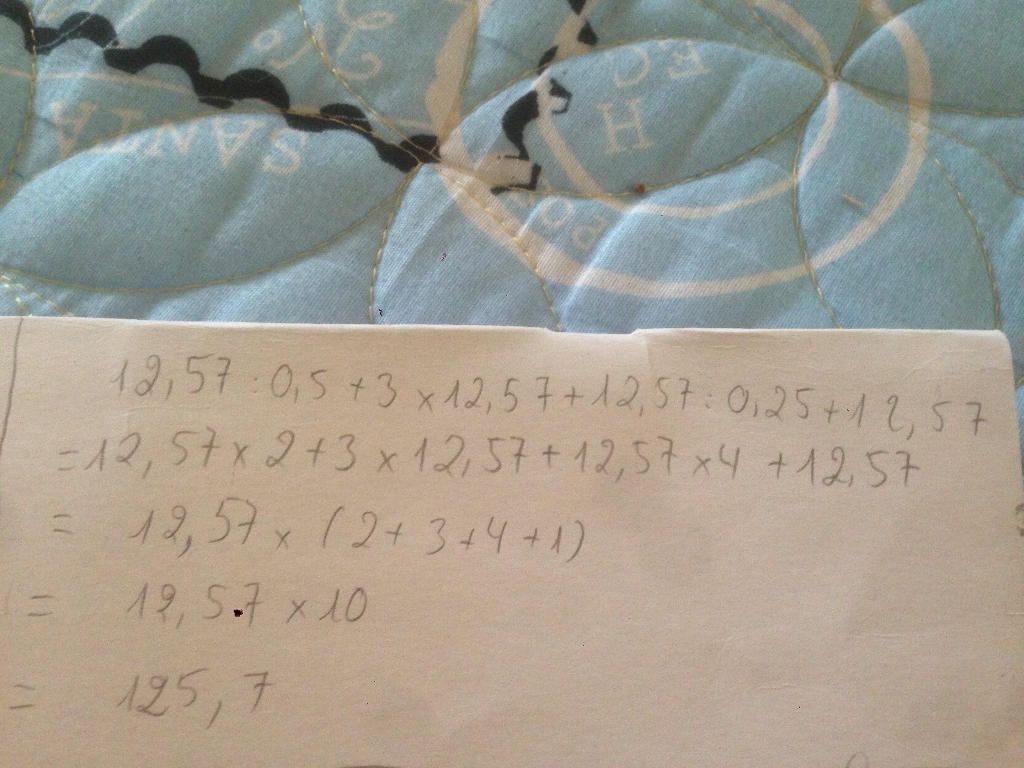 SANTA
EC
H
PO
12,57 : 0,5 + 3 x 12,57 + 12,57 : 0,25 + 12,57
= 12,57 x 2 + 3 x 12,57 + 12,57 x 4 + 12,57
= 12,57 x (2 + 3 + 4 + 1)
= 12,57 x 10
= 125,7